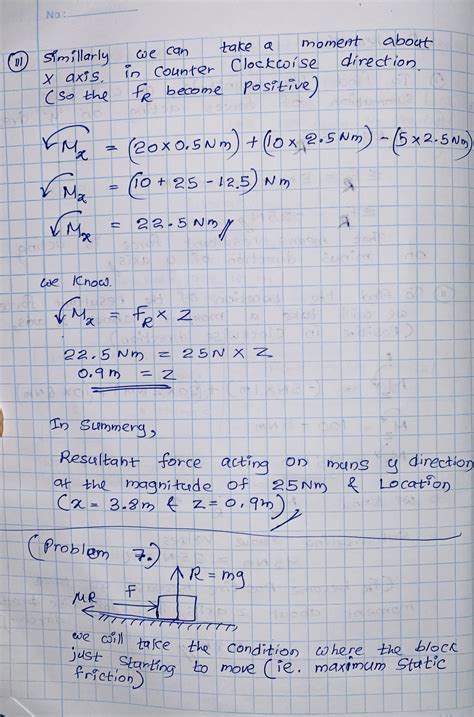 No:
(iii) Simillarly we can take a moment about
x axis, in Counter Clockwise direction.
(So the fR become Positive)
Mx = (20 x 0.5 Nm) + (10 x 2.5 Nm) - (5 x 2.5 Nm)
Mx = (10 + 25 - 12.5) Nm
Mx = 22.5 Nm
we Know.
Mx = fR x Z
22.5 Nm = 25N x Z
0.9m = Z
In Summerg,
Resultant force acting on muns y direction
at the magnitude of 25Nm & Location
(x = 3.8m & z = 0.9m)
(Problem 7.)
R = mg
μR F
we will take the condition where the block
just starting to move (ie. maximum static
friction)